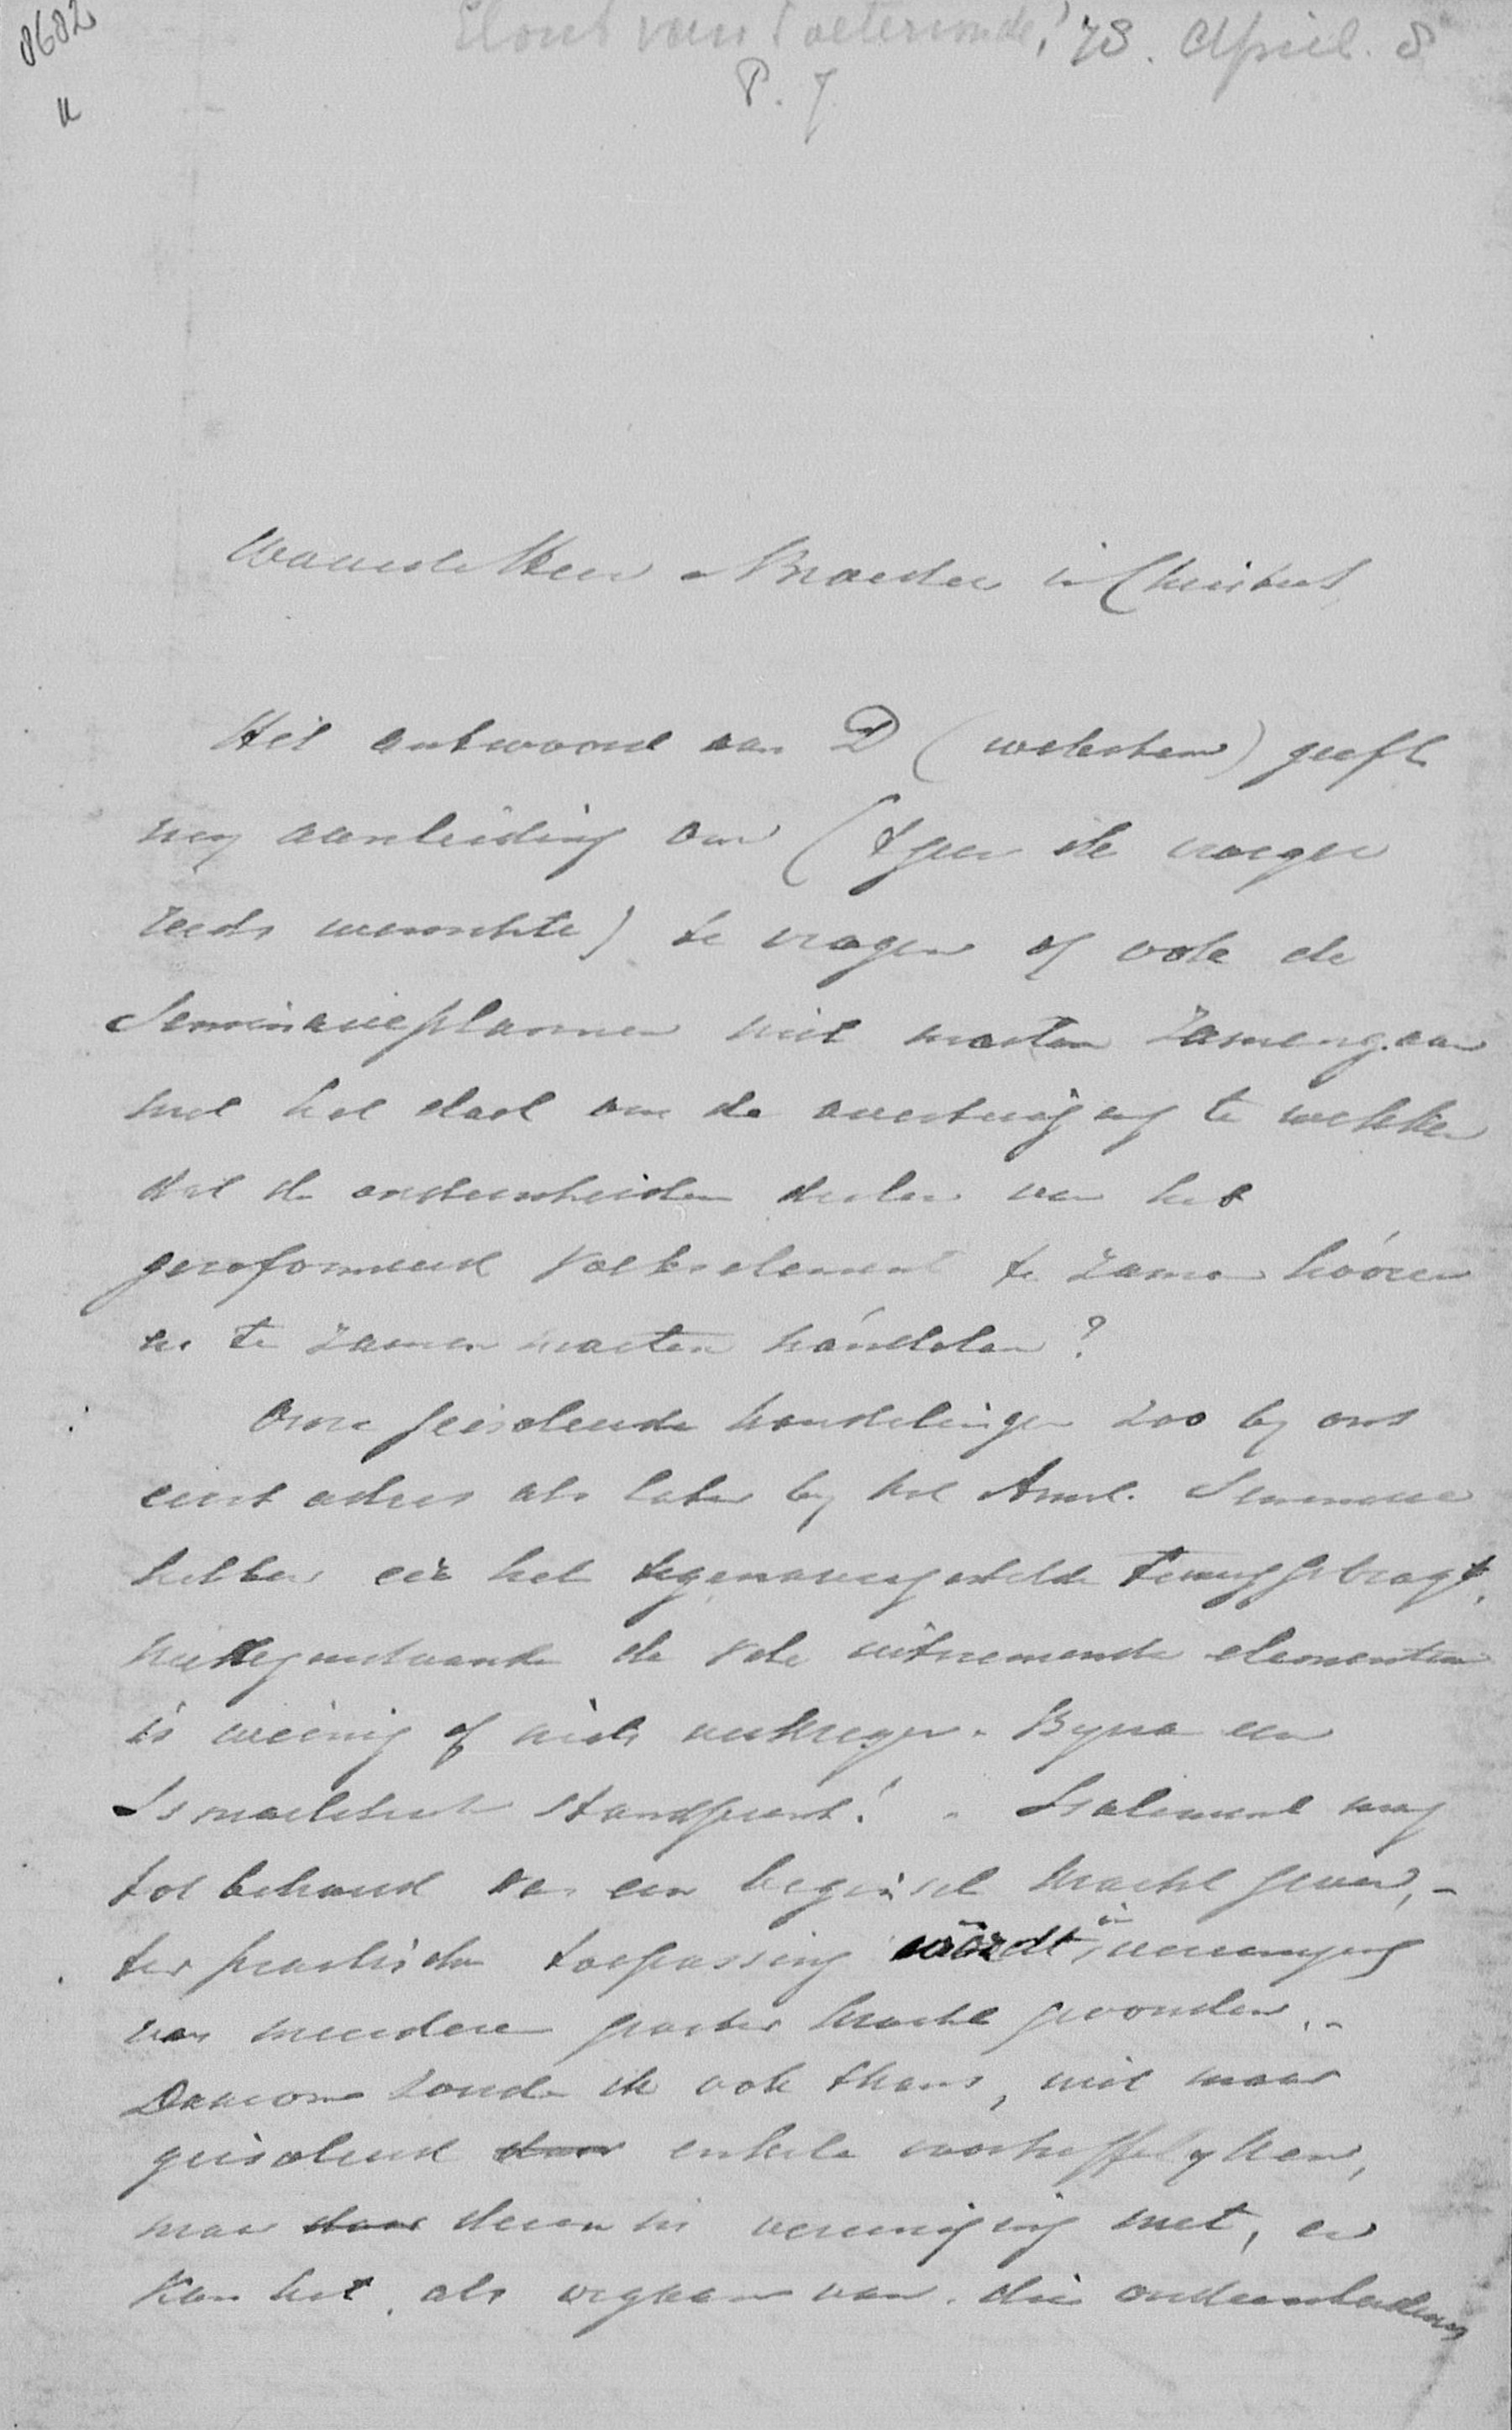 8682
u
Elout van Soeterwoude, '78. April. 8
P. J
Waarde Heer & Broeder in Christus
Het antwoord van D ( ) geeft
my aanleiding om (tgeen ik vroeger
reeds wenschte) te vragen of ook de
Seminarieplannen niet moeten zamengaan
met het doel om de overtuiging te wekken
dat de onderscheiden deelen van het
gereformeerd volkselement te zamen hóoren
en te zamen moeten hándelen?
Onze geisoleerde handelingen zoo by ons
eerst adres als later by het Amst. Seminarie
hebben eer het tegenovergestelde teweeggebragt.
Niettegenstaande de vele uitnemende elementen
is weinig of niets verkregen. Byna een
Ismaelitisch standpunt! - Isolement mag
tot behoud van een beginsel kracht geven, -
ter practische toepassing wordt in vereeniging
van meerderen grooter kracht gevonden. -
Daarom zoude ik ook thans, niet maar
geisoleerd door enkele voortreffelyken,
maar door dezen in vereeniging met, en
kan het, als orgaan van die onderscheidene